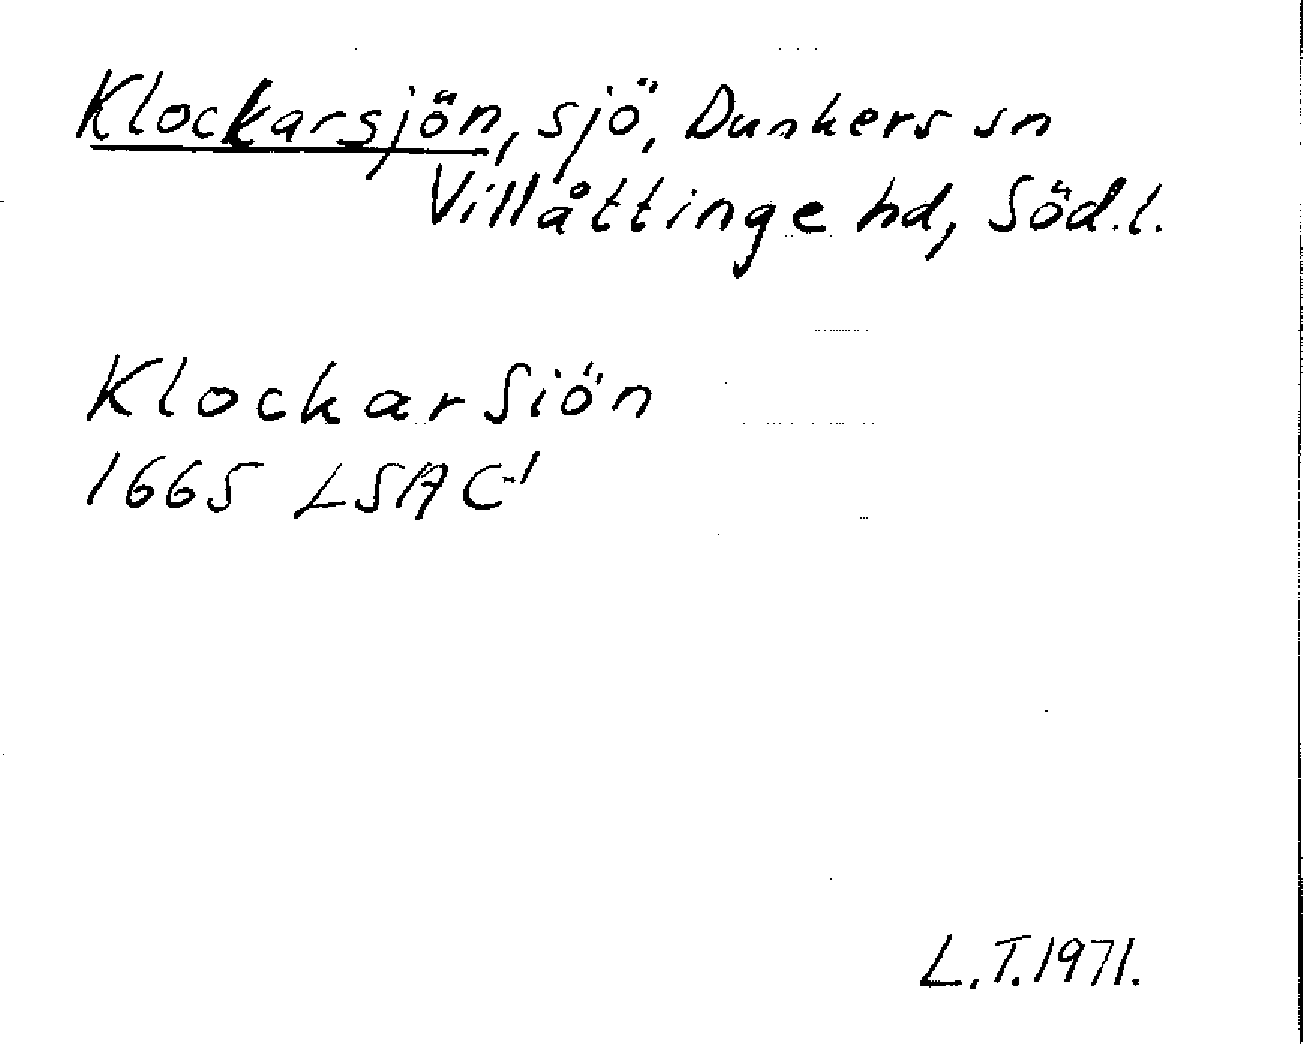 Klockarsjön, sjö, Dunkers sn
Villåttinge hd, Söd.l.
Klockarsiön
1665 LSA C-1
L.T. 1971.